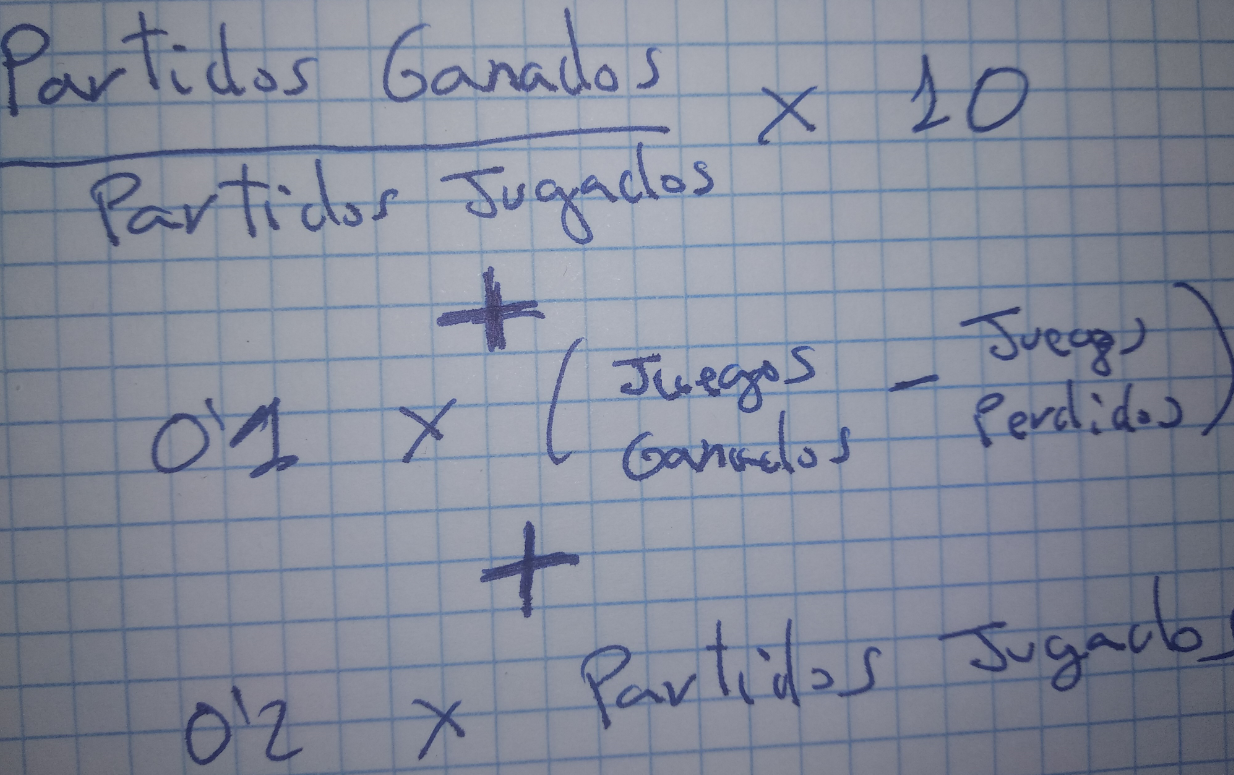 Partidos Ganados
x 10
Partidos Jugados
+
0'1 x (Juegos Ganados - Juegos Perdidos)
+
0'2 x Partidos Jugados